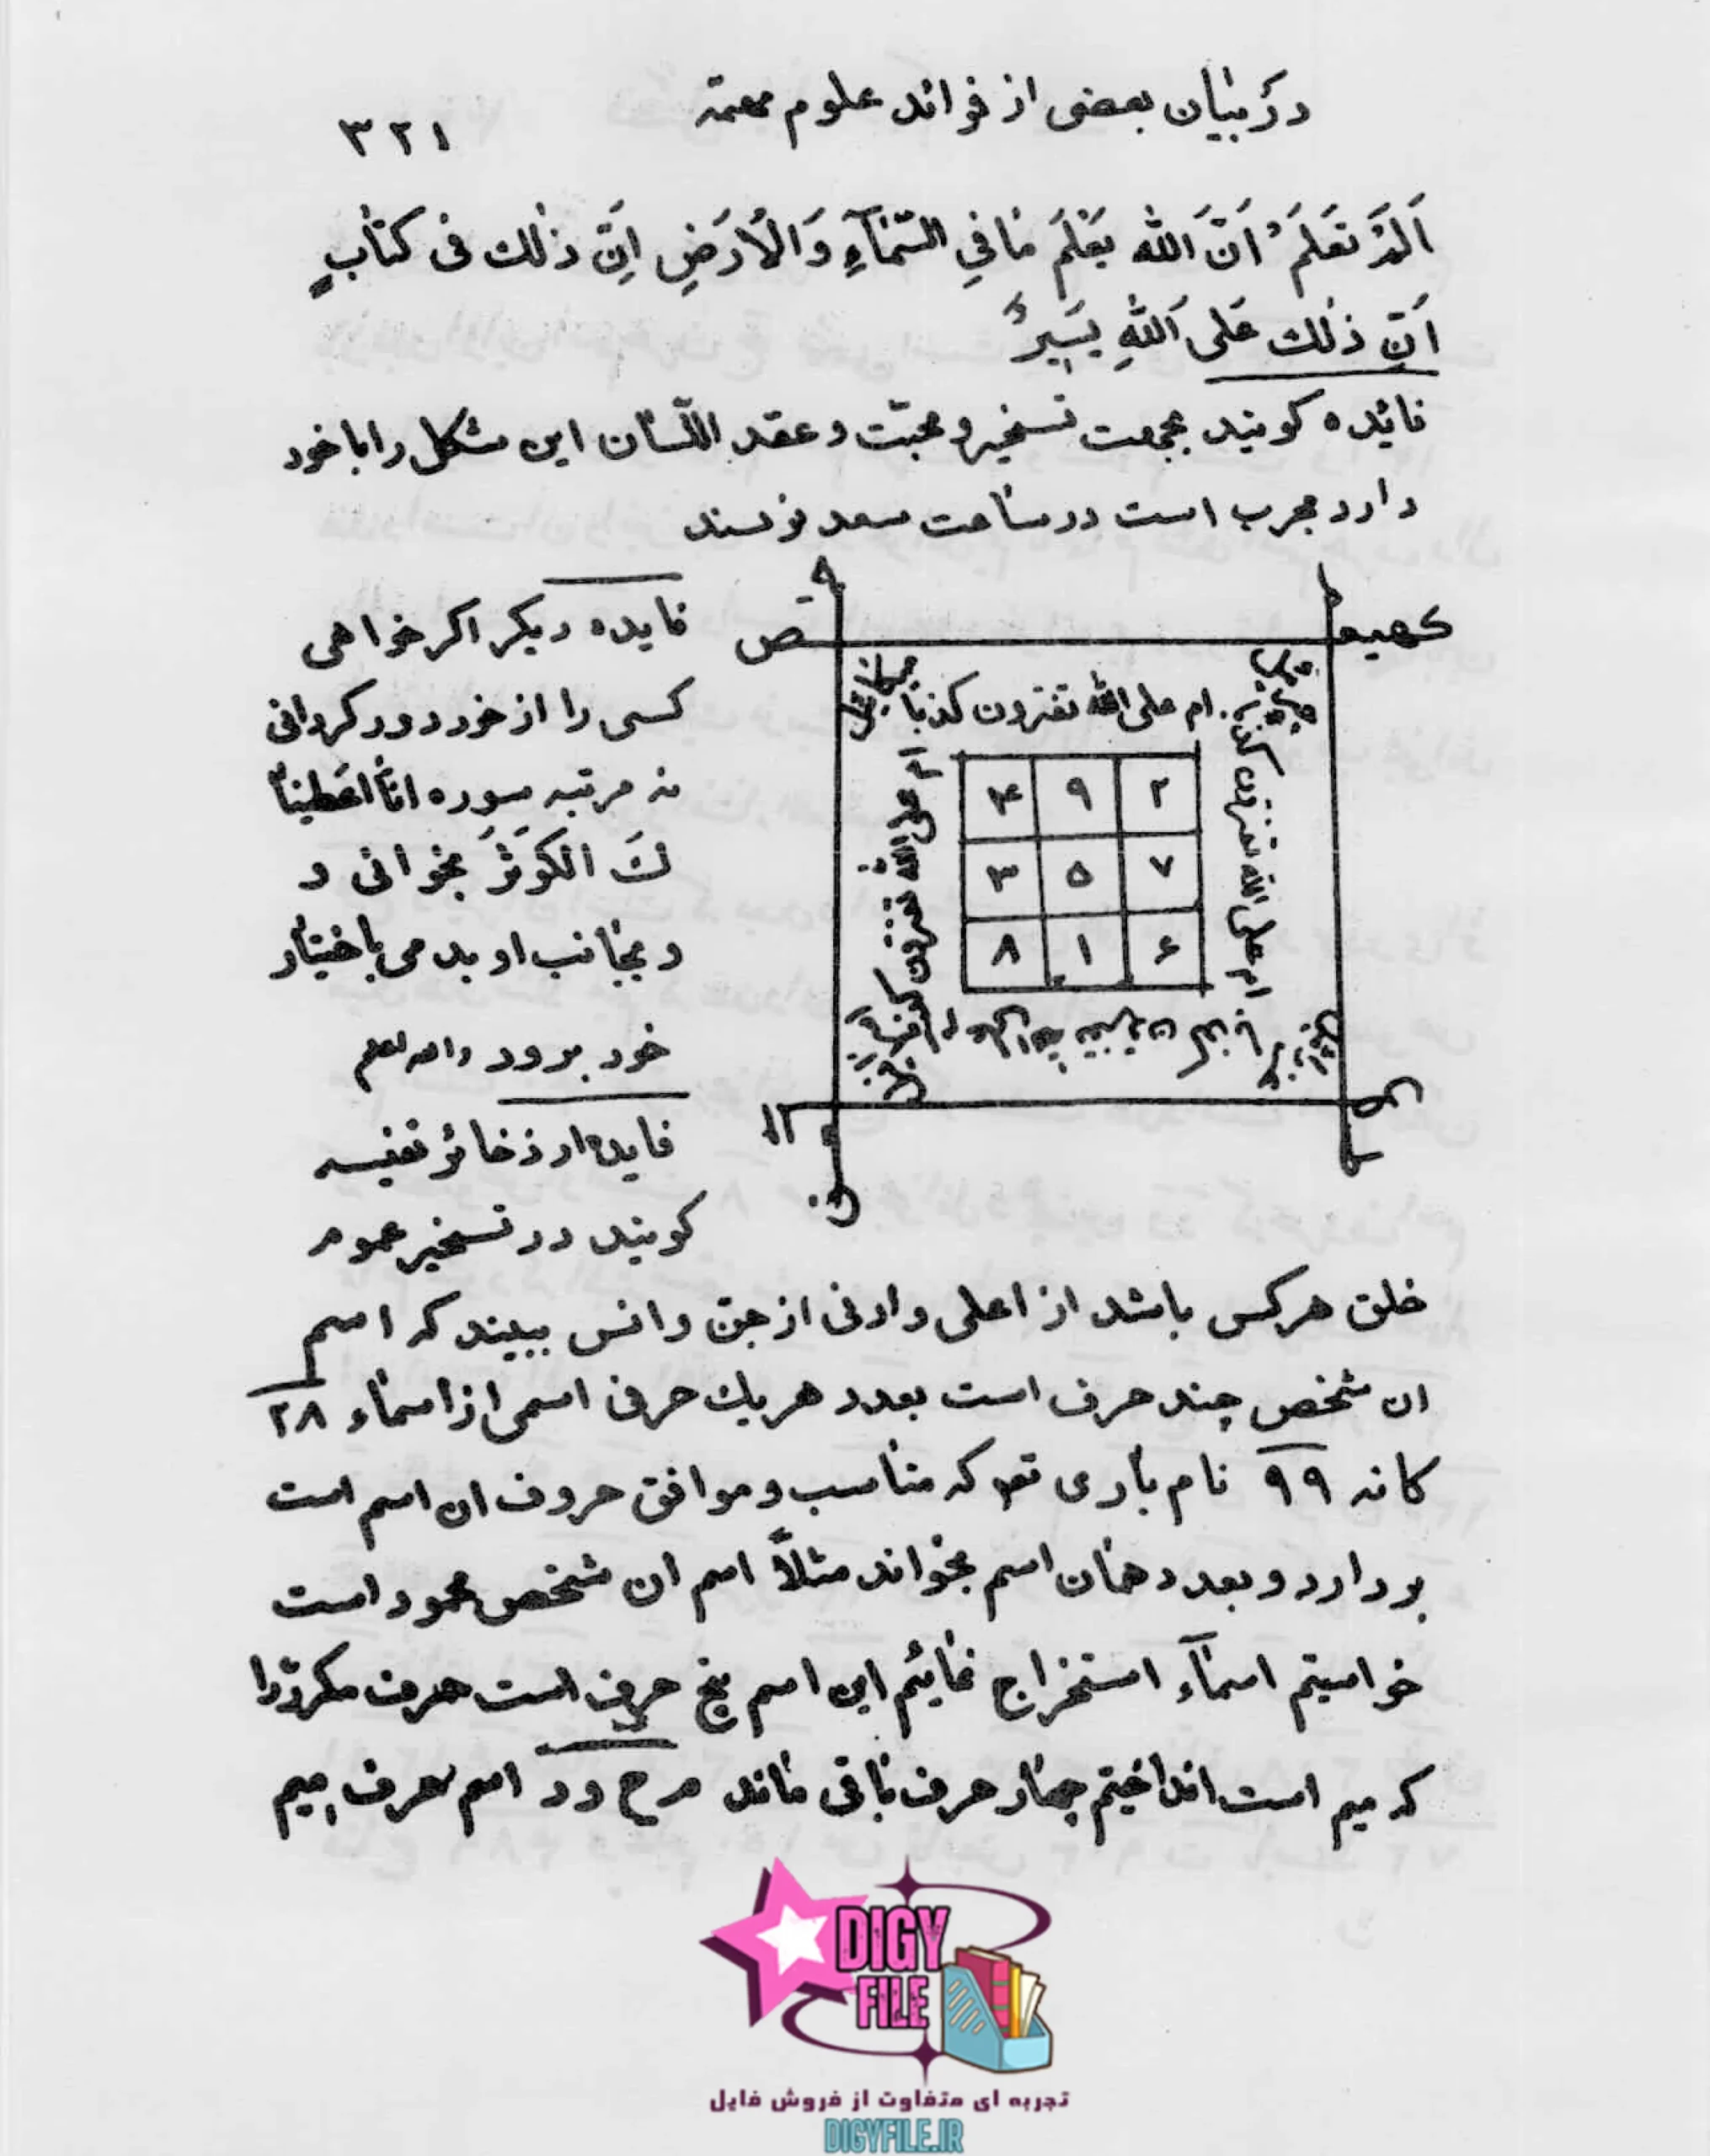 در بیان بعضی از فوائد علوم مهمة
۳۲۱
اَلَمْ تَعْلَمْ اَنَّ اللّه يَعْلَمُ مَا فِي السَّمَآءِ وَالْاَرْضِ اِنَّ ذٰلك فی كتابٍ
اِنَّ ذٰلك عَلَى اللّٰهِ يَسِيرٌ
فائده کویند بجهت تسخیر و محبّت و عقد اللّسان این مشکل را با خود
دارد مجرب است در ساعت سعد نویسند
ص
کهیع
ام علی الله تفترون کذبا
ام علی الله تفترون
ام علی الله تفترون
میکائیل
۴ ۹ ۲
۳ ۵ ۷
۸ ۱ ۶
ن
فایده دیکر اکر خواهی
کسی را از خود دور کردانی
نه مرتبه سوره انّا اَعْطَینا
كَ الْكَوْثَرَ بخوانی و
و بجانب او بدمی باختیار
خود برود والله اعلم
فایده از ذخائر نفیسه
کویند در تسخیر عموم
خلق هرکس باشد از اعلی و ادنی از جنّ و انس ببیند که اسم
ان شخص چند حرف است بعدد هر یك حرفی اسمی از اسماء ۲۸
کانه ۹۹ نام باری تعو که مناسب و موافق حروف ان اسم است
بردارد و بعدد همان اسم بخواند مثلاً اسم ان شخص محمود است
خواستیم اسمآء استخراج نمائیم این اسم پنج حرف است حرف مکرّر را
که میم است انداختیم چهار حرف باقی ماند م ح و د اسم حرف میم
DIGY
FILE
تجربه ای متفاوت از فروش فایل
DIGYFILE.IR